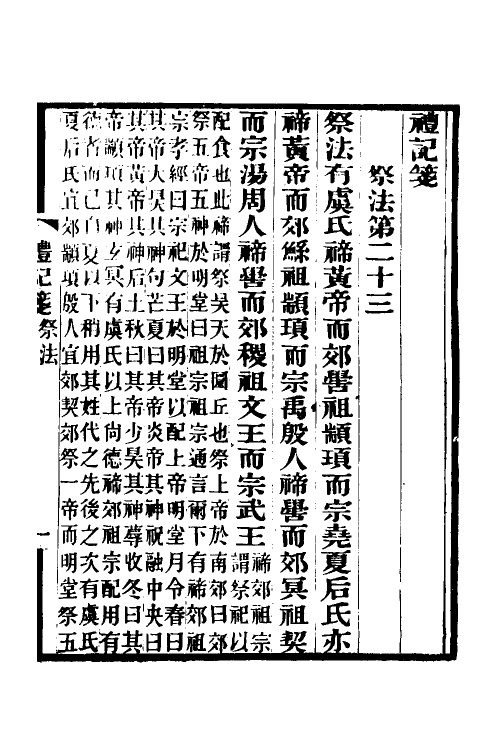 禮記箋
祭法第二十三
祭法有虞氏禘黃帝而郊嚳祖顓頊而宗堯夏后氏亦
禘黃帝而郊鯀祖顓頊而宗禹殷人禘嚳而郊冥祖契
而宗湯周人禘嚳而郊稷祖文王而宗武王
禘郊祖宗
謂祭祀以
配食也此禘謂祭昊天於圜丘也祭上帝於南郊曰郊
祭五帝五神於明堂曰祖宗祖宗通言爾下有禘郊祖
宗孝經曰宗祀文王於明堂以配上帝明堂月令春曰
其帝大昊其神句芒夏曰其帝炎帝其神祝融中央曰
其帝黃帝其神后土秋曰其帝少昊其神蓐收冬曰其
帝顓頊其神玄冥有虞氏以上尚德禘郊祖宗配用有
德者而已自夏以下稍用其姓代之先後之次有虞氏
夏后氏宜郊顓頊殷人宜郊契郊祭一帝而明堂祭五
禮記箋 祭法
一